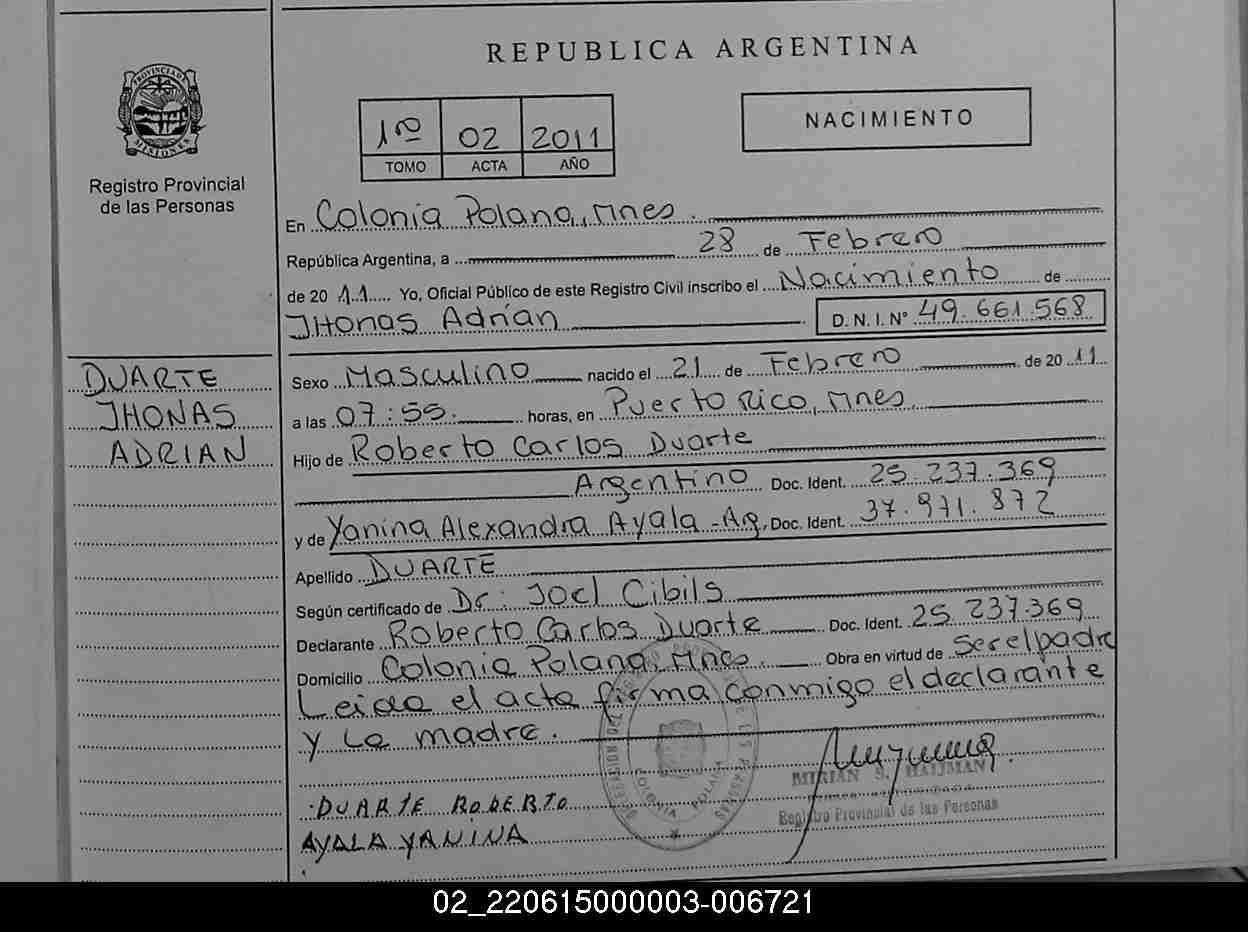 REPUBLICA ARGENTINA
PROVINCIA DE
MISIONES
Registro Provincial
de las Personas
1ro 02 2011
TOMO ACTA AÑO
NACIMIENTO
En Colonia Polana, Mnes.
República Argentina, a 28 de Febrero
de 2011 Yo, Oficial Público de este Registro Civil inscribo el Nacimiento de
JHonas Adrían D.N.I.N° 49.661.568
DUARTE
JHONAS
ADRIAN
Sexo Masculino nacido el 21 de Febrero de 2011
a las 07:55. horas, en Puerto Rico, Mnes
Hijo de Roberto Carlos Duarte
Argentino Doc. Ident. 25.237.369
y de Yanina Alexandra Ayala-Ag. Doc. Ident. 37.971.872
Apellido DUARTE
Según certificado de Dr. Joel Cibils
Declarante Roberto Carlos Duarte Doc. Ident. 25.237.369
Domicilio Colonia Polana, Mnes. Obra en virtud de Ser el padre
Leida el acta firma conmigo el declarante
y la madre.
MIRIAN S. HAIJMAN
Registro Provincial de las Personas
COLONIA POLANA
DUARTE ROBERTO
AYALA YANINA
02_220615000003-006721